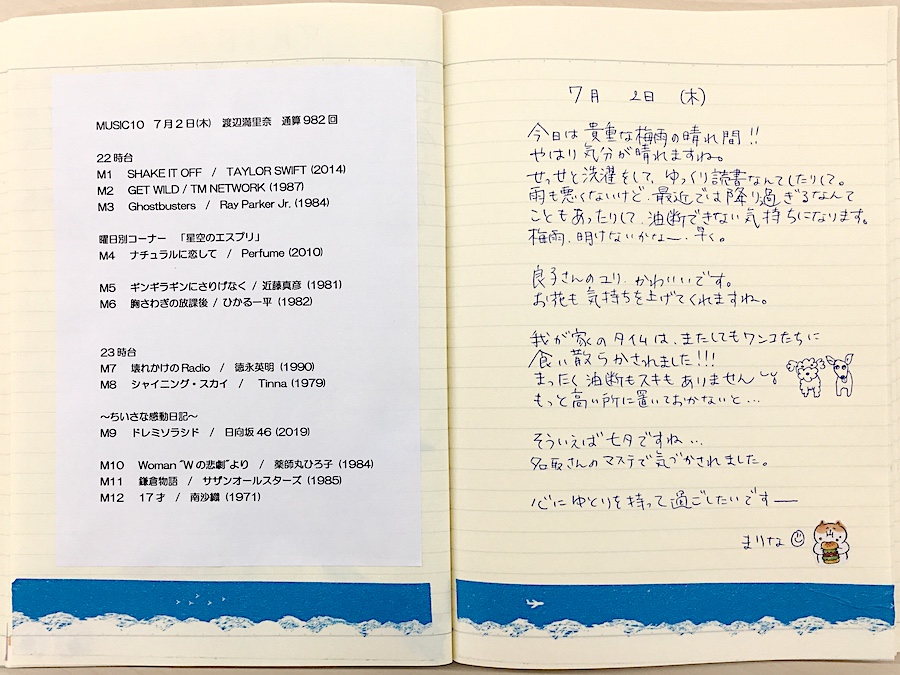 MUSIC10 7月2日(木) 渡辺満里奈 通算982回
22時台
M1 SHAKE IT OFF / TAYLOR SWIFT (2014)
M2 GET WILD / TM NETWORK (1987)
M3 Ghostbusters / Ray Parker Jr. (1984)
曜日別コーナー 「星空のエスプリ」
M4 ナチュラルに恋して / Perfume (2010)
M5 ギンギラギンにさりげなく / 近藤真彦 (1981)
M6 胸さわぎの放課後 / ひかる一平 (1982)
23時台
M7 壊れかけのRadio / 徳永英明 (1990)
M8 シャイニング・スカイ / Tinna (1979)
～ちいさな感動日記～
M9 ドレミソラシド / 日向坂46 (2019)
M10 Woman "Wの悲劇"より / 薬師丸ひろ子 (1984)
M11 鎌倉物語 / サザンオールスターズ (1985)
M12 17才 / 南沙織 (1971)
7月 2日 (木)
今日は貴重な梅雨の晴れ間!!
やはり気分が晴れますね。
せっせと洗濯をして、ゆっくり読書なんてしたりして。
雨も悪くないけど、最近では降り過ぎるなんて
こともあったりして、油断できない気持ちになります。
梅雨、明けないかなー、早く。
良子さんのユリ、かわいいです。
お花も気持ちを上げてくれますね。
我が家のタイムは、またしてもワンコたちに
食い散らかされました!!!
まったく油断もスキもありません
もっと高い所に置いておかないと…
そういえば七夕ですね…
名取さんのマステで気づかされました。
心にゆとりを持って過ごしたいですー
まりな